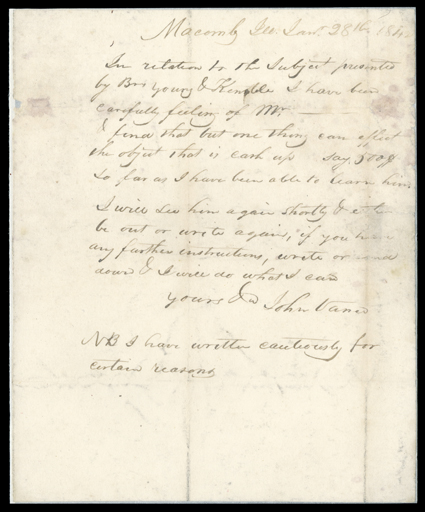 Macomb Ill Jan. 28th 184
In relation to the Subject presented
by Bro Young & Kimble I have been
carefully feeling of Mr ———
& find that but one thing can effect
the object that is cash up say 500$
So far as I have been able to learn him
I will see him again shortly &
be out or write again, if you have
any further instructions, write or send
down & I will do what I can
yours &c John Vance
NB I have written cautiously for
certain reasons